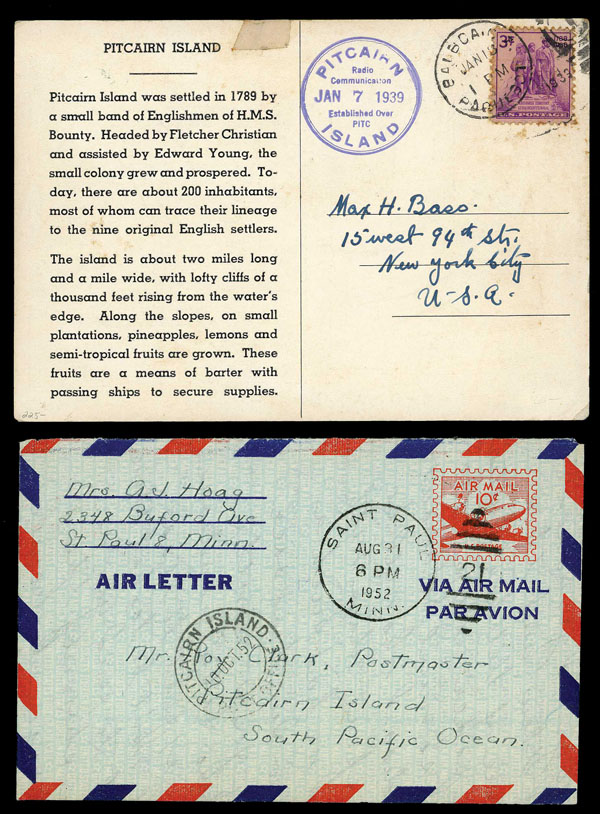 PITCAIRN ISLAND
Pitcairn Island was settled in 1789 by
a small band of Englishmen of H.M.S.
Bounty. Headed by Fletcher Christian
and assisted by Edward Young, the
small colony grew and prospered. To-
day, there are about 200 inhabitants,
most of whom can trace their lineage
to the nine original English settlers.
The island is about two miles long
and a mile wide, with lofty cliffs of a
thousand feet rising from the water's
edge. Along the slopes, on small
plantations, pineapples, lemons and
semi-tropical fruits are grown. These
fruits are a means of barter with
passing ships to secure supplies.
225-
PITCAIRN
Radio
Communication
JAN 7 1939
Established Over
PITC
ISLAND
JAN
1 PM
1939
3¢
U.S. POSTAGE
Max H. Bass.
15 west 94th str.
New York City
U-S.A.
Mrs. A.J. Hoag
2348 Buford Ave
St Paul 8, Minn.
AIR LETTER
SAINT PAUL
AUG 31
6 PM
1952
MINN.
21
AIR MAIL
10¢
VIA AIR MAIL
PAR AVION
PITCAIRN ISLAND
OCT 52
Mr. Roy Clark, Postmaster
Pitcairn Island
South Pacific Ocean.